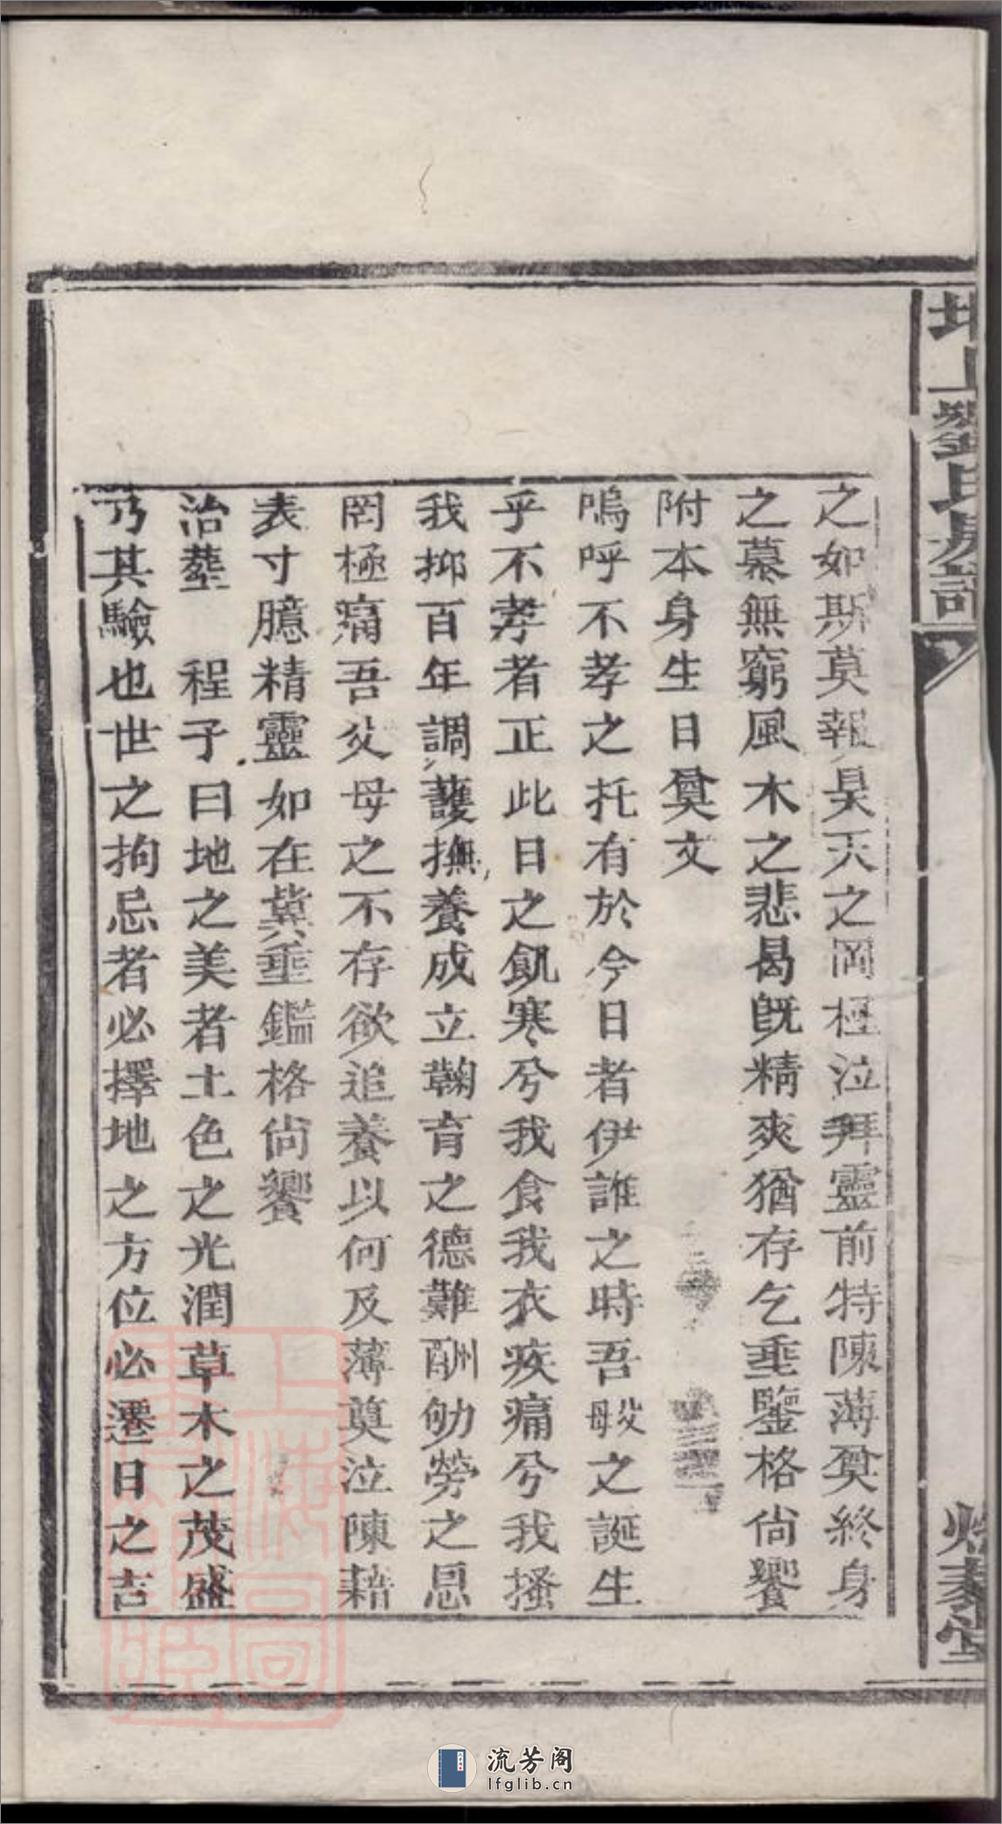 之如斯莫報昊天之罔極泣拜靈前特陳薄奠終身
之慕無窮風木之悲曷旣精爽猶存乞垂鑒格尙饗
附本身生日奠文
嗚呼不孝之托有於今日者伊誰之時吾母之誕生
乎不孝者正此日之飢寒兮我食我衣疾痛兮我搔
我抑百年調護撫養成立鞠育之德難酬劬勞之恩
罔極痛吾父母之不存欲追養以何及薄奠泣陳藉
表寸臆精靈如在冀垂鑑格尙饗
治塟 程子曰地之美者土色之光潤草木之茂盛
乃其驗也世之拘忌者必擇地之方位必遷日之吉
劉氏房譜
上海圖書館藏
流芳阁
lfglib.cn